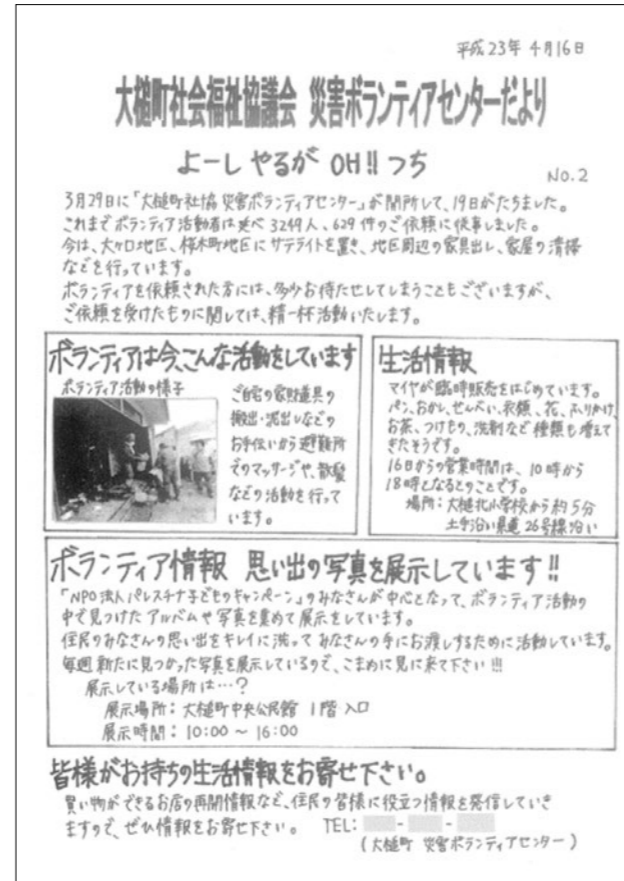 平成23年 4月16日
大槌町社会福祉協議会 災害ボランティアセンターだより
よーし やるが OH!! つち
No.2
3月29日に「大槌町社協 災害ボランティアセンター」が開所して、19日がたちました。
これまでボランティア活動者は延べ 3249人、629件のご依頼に従事しました。
今は、大ケ口地区、桜木町地区にサテライトを置き、地区周辺の家具出し、家屋の清掃
などを行っています。
ボランティアを依頼された方には、多少お待たせしてしまうこともございますが、
ご依頼を受けたものに関しては、精一杯活動いたします。
ボランティアは今、こんな活動をしています
ボランティア活動の様子
ご自宅の家財道具の
搬出・泥出しなどの
お手伝いから避難所
でのマッサージや、散髪
などの活動を行って
います。
生活情報
マイヤが臨時販売をはじめています。
パン、おかし、せんべい、衣類、花、ふりかけ、
お茶、つけもの、洗剤など種類も増えて
きたそうです。
16日からの営業時間は、10時から
18時となるとのことです。
場所:大槌北小学校から約5分
土手沿い県道26号線沿い
ボランティア情報 思い出の写真を展示しています!!
「NPO法人パレスチナ子どものキャンペーン」のみなさんが中心となって、ボランティア活動の
中で見つけたアルバムや写真を集めて展示をしています。
住民のみなさんの思い出をキレイに洗ってみなさんの手にお渡しするために活動しています。
毎週新たに見つかった写真を展示しているので、こまめに見に来て下さい!!!
展示している場所は…?
展示場所:大槌町中央公民館 1階 入口
展示時間:10:00 ~ 16:00
皆様がお持ちの生活情報をお寄せ下さい。
買い物ができるお店の再開情報など、住民の皆様に役立つ情報を発信していき
ますので、ぜひ情報をお寄せ下さい。 TEL: - -
(大槌町 災害ボランティアセンター)